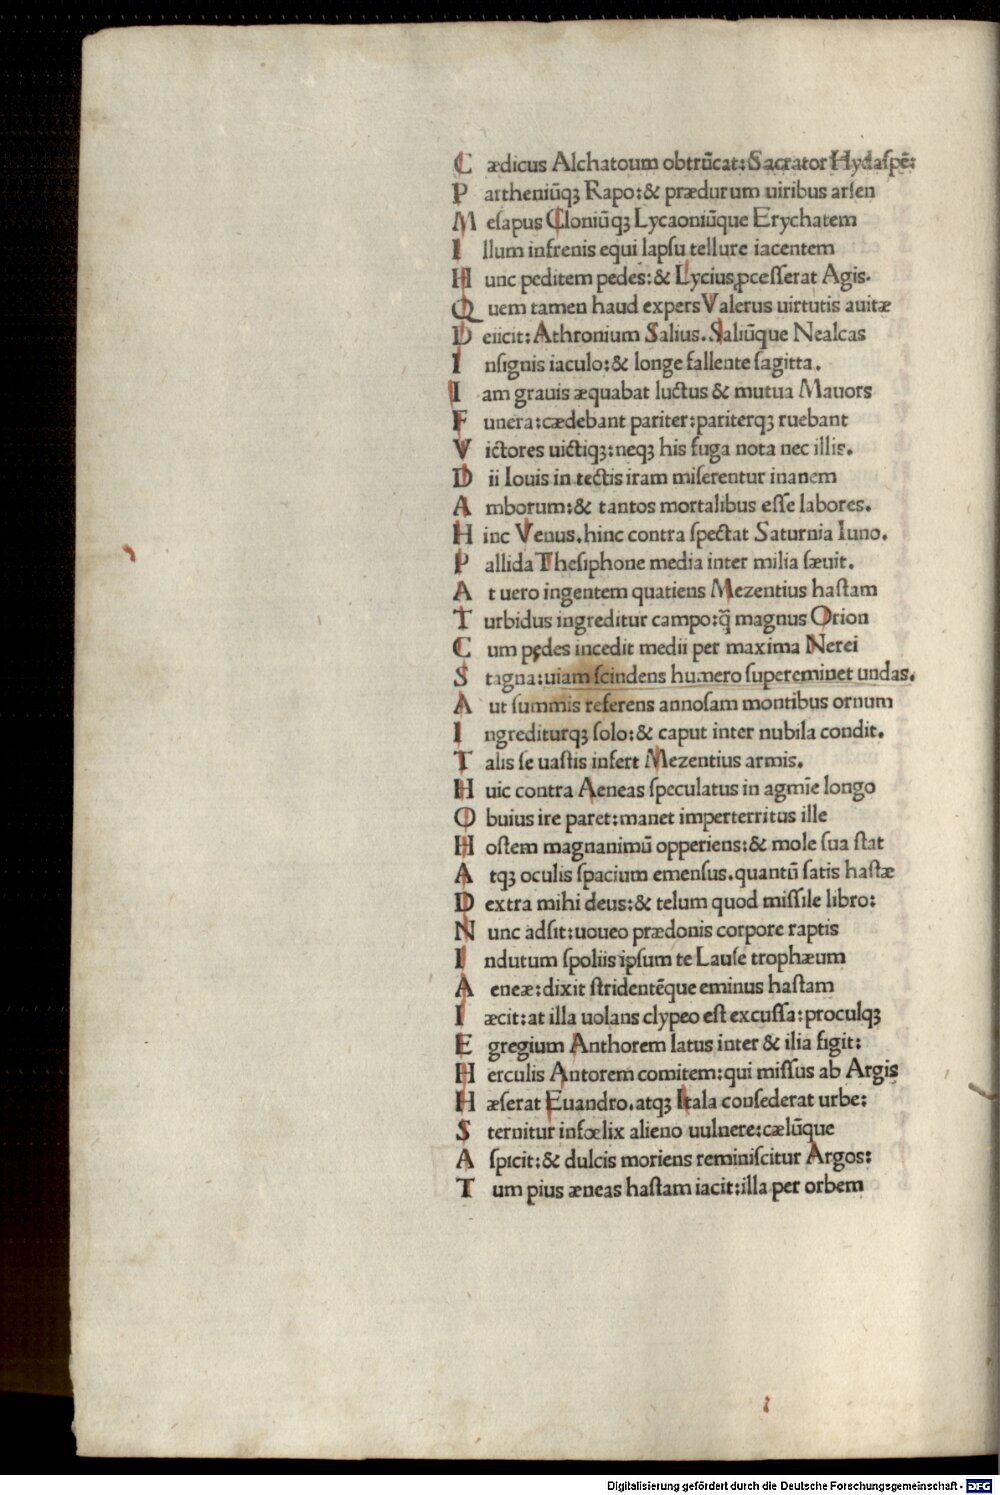 C ædicus Alchatoum obtrūcat: Sacrator Hydaſpē:
P artheniūqꝫ Rapo: & prædurum uiribus arſen
M eſapus Cloniūqꝫ Lycaoniūque Erychatem
I llum infrenis equi lapſu tellure iacentem
H unc peditem pedes: & Lycius ꝓceſſerat Agis.
Q uem tamen haud expers Valerus uirtutis auitæ
D eiicit: Athronium Salius. Saliūque Nealcas
I nſignis iaculo: & longe fallente ſagitta.
I am grauis æquabat luctus & mutua Mauors
F unera: cædebant pariter: pariterqꝫ ruebant
V ictores uictiqꝫ: neqꝫ his fuga nota nec illis.
D ii Iouis in tectis iram miſerentur inanem
A mborum: & tantos mortalibus eſſe labores.
H inc Venus. hinc contra ſpectat Saturnia Iuno.
P allida Theſiphone media inter milia ſæuit.
A t uero ingentem quatiens Mezentius haſtam
T urbidus ingreditur campo: q̄ magnus Orion
C um pedes incedit medii per maxima Nerei
S tagna: uiam ſcindens humero ſupereminet undas.
A ut ſummis referens annoſam montibus ornum
I ngrediturqꝫ ſolo: & caput inter nubila condit.
T alis ſe uaſtis infert Mezentius armis.
H uic contra Aeneas ſpeculatus in agmīe longo
O buius ire paret: manet imperterritus ille
H oſtem magnanimū opperiens: & mole ſua ſtat
A tqꝫ oculis ſpacium emenſus. quantū ſatis haſtæ
D extra mihi deus: & telum quod miſſile libro:
N unc adſit: uoueo prædonis corpore raptis
I ndutum ſpoliis ipſum te Lauſe trophæum
A eneæ: dixit ſtridentēque eminus haſtam
I æcit: at illa uolans clypeo eſt excuſſa: proculqꝫ
E gregium Anthorem latus inter & ilia figit:
H erculis Antorem comitem: qui miſſus ab Argis
H æſerat Euandro. atqꝫ Itala conſederat urbe:
S ternitur infœlix alieno uulnere: cælūque
A ſpicit: & dulcis moriens reminiſcitur Argos:
T um pius æneas haſtam iacit: illa per orbem
Digitalisierung gefördert durch die Deutsche Forschungsgemeinschaft - DFG